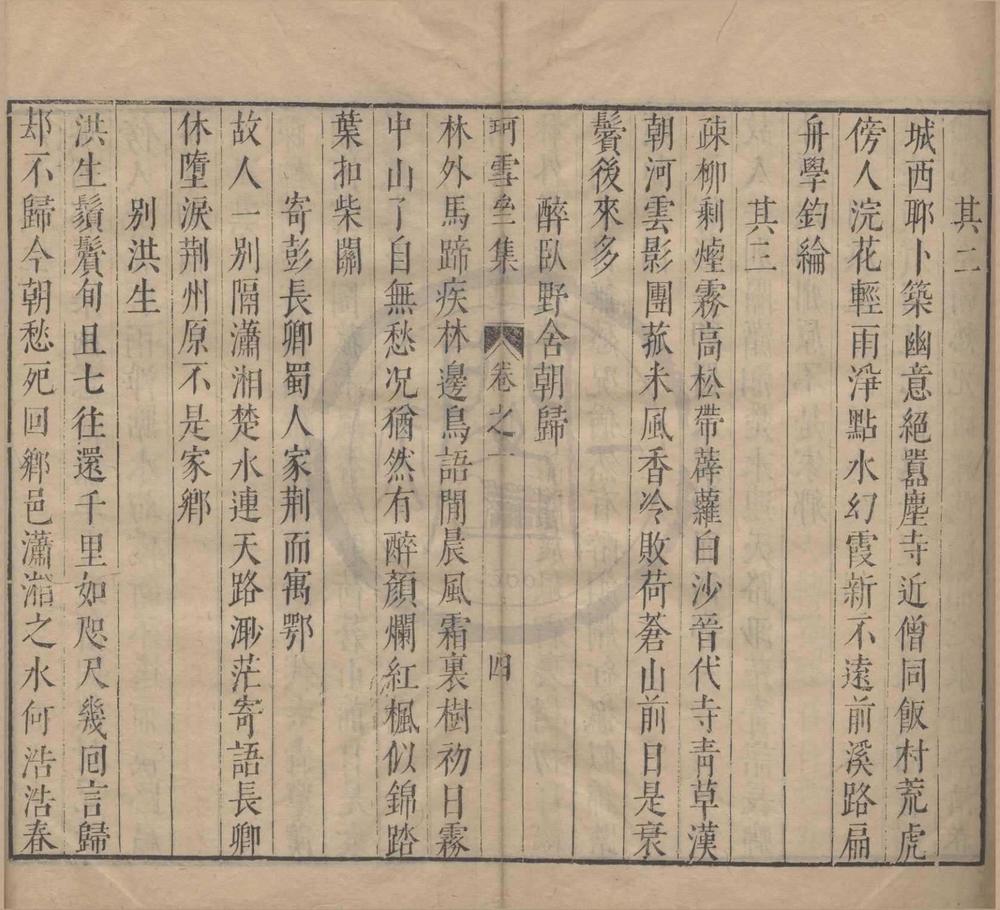 其二
城西聊卜築幽意絕囂塵寺近僧同飯村荒虎
傍人浣花輕雨淨點水幻霞新不遠前溪路扁
舟學釣綸
其三
疎柳剩煙霧高松帶薜蘿白沙晉代寺青草漢
朝河雲影團菰米風香冷敗荷蒼山前日是衰
鬢後來多
醉臥野舍朝歸
珂雪二集 卷之一 四
林外馬蹄疾林邊鳥語閒晨風霜裏樹初日霧
中山了自無愁况猶然有醉顏爛紅楓似錦踏
葉扣柴關
寄彭長卿蜀人家荆而寓鄂
故人一別隔瀟湘楚水連天路渺茫寄語長卿
休墮淚荆州原不是家鄉
別洪生
洪生鬚鬢旬且七往還千里如咫尺幾回言歸
却不歸今朝愁死回鄉邑瀟湘之水何浩浩春